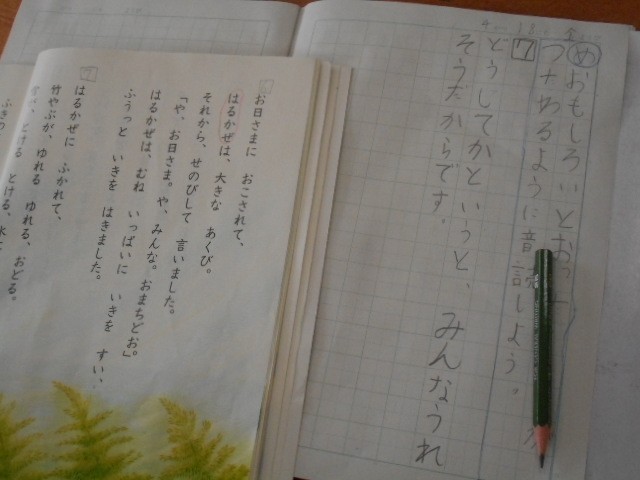 め おもしろいとおっ
つたわるように音読しよう。
7 どうしてかというと、みんなうれ
そうだからです。
お日さまに おこされて、
はるかぜは、大きな あくび。
それから、せのびして 言いました。
「や、お日さま。や、みんな。おまちどお。」
はるかぜは、むね いっぱいに いきを すい、
ふうっと いきを はきました。
はるかぜに ふかれて、
竹やぶが、ゆれる ゆれる、おどる。
とける とける、水に
ふきの